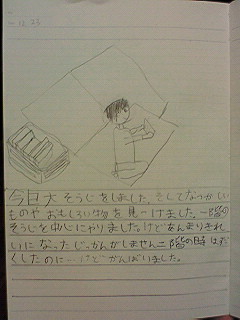 12.23
今日大そうじをしました。そしてなつかしい
ものやおもしろい物を見つけました。一階の
そうじを中心にやりました。けどあんまりきれ
いになったじっかんがしません二階の時は
くしたのに…けどがんばりました。